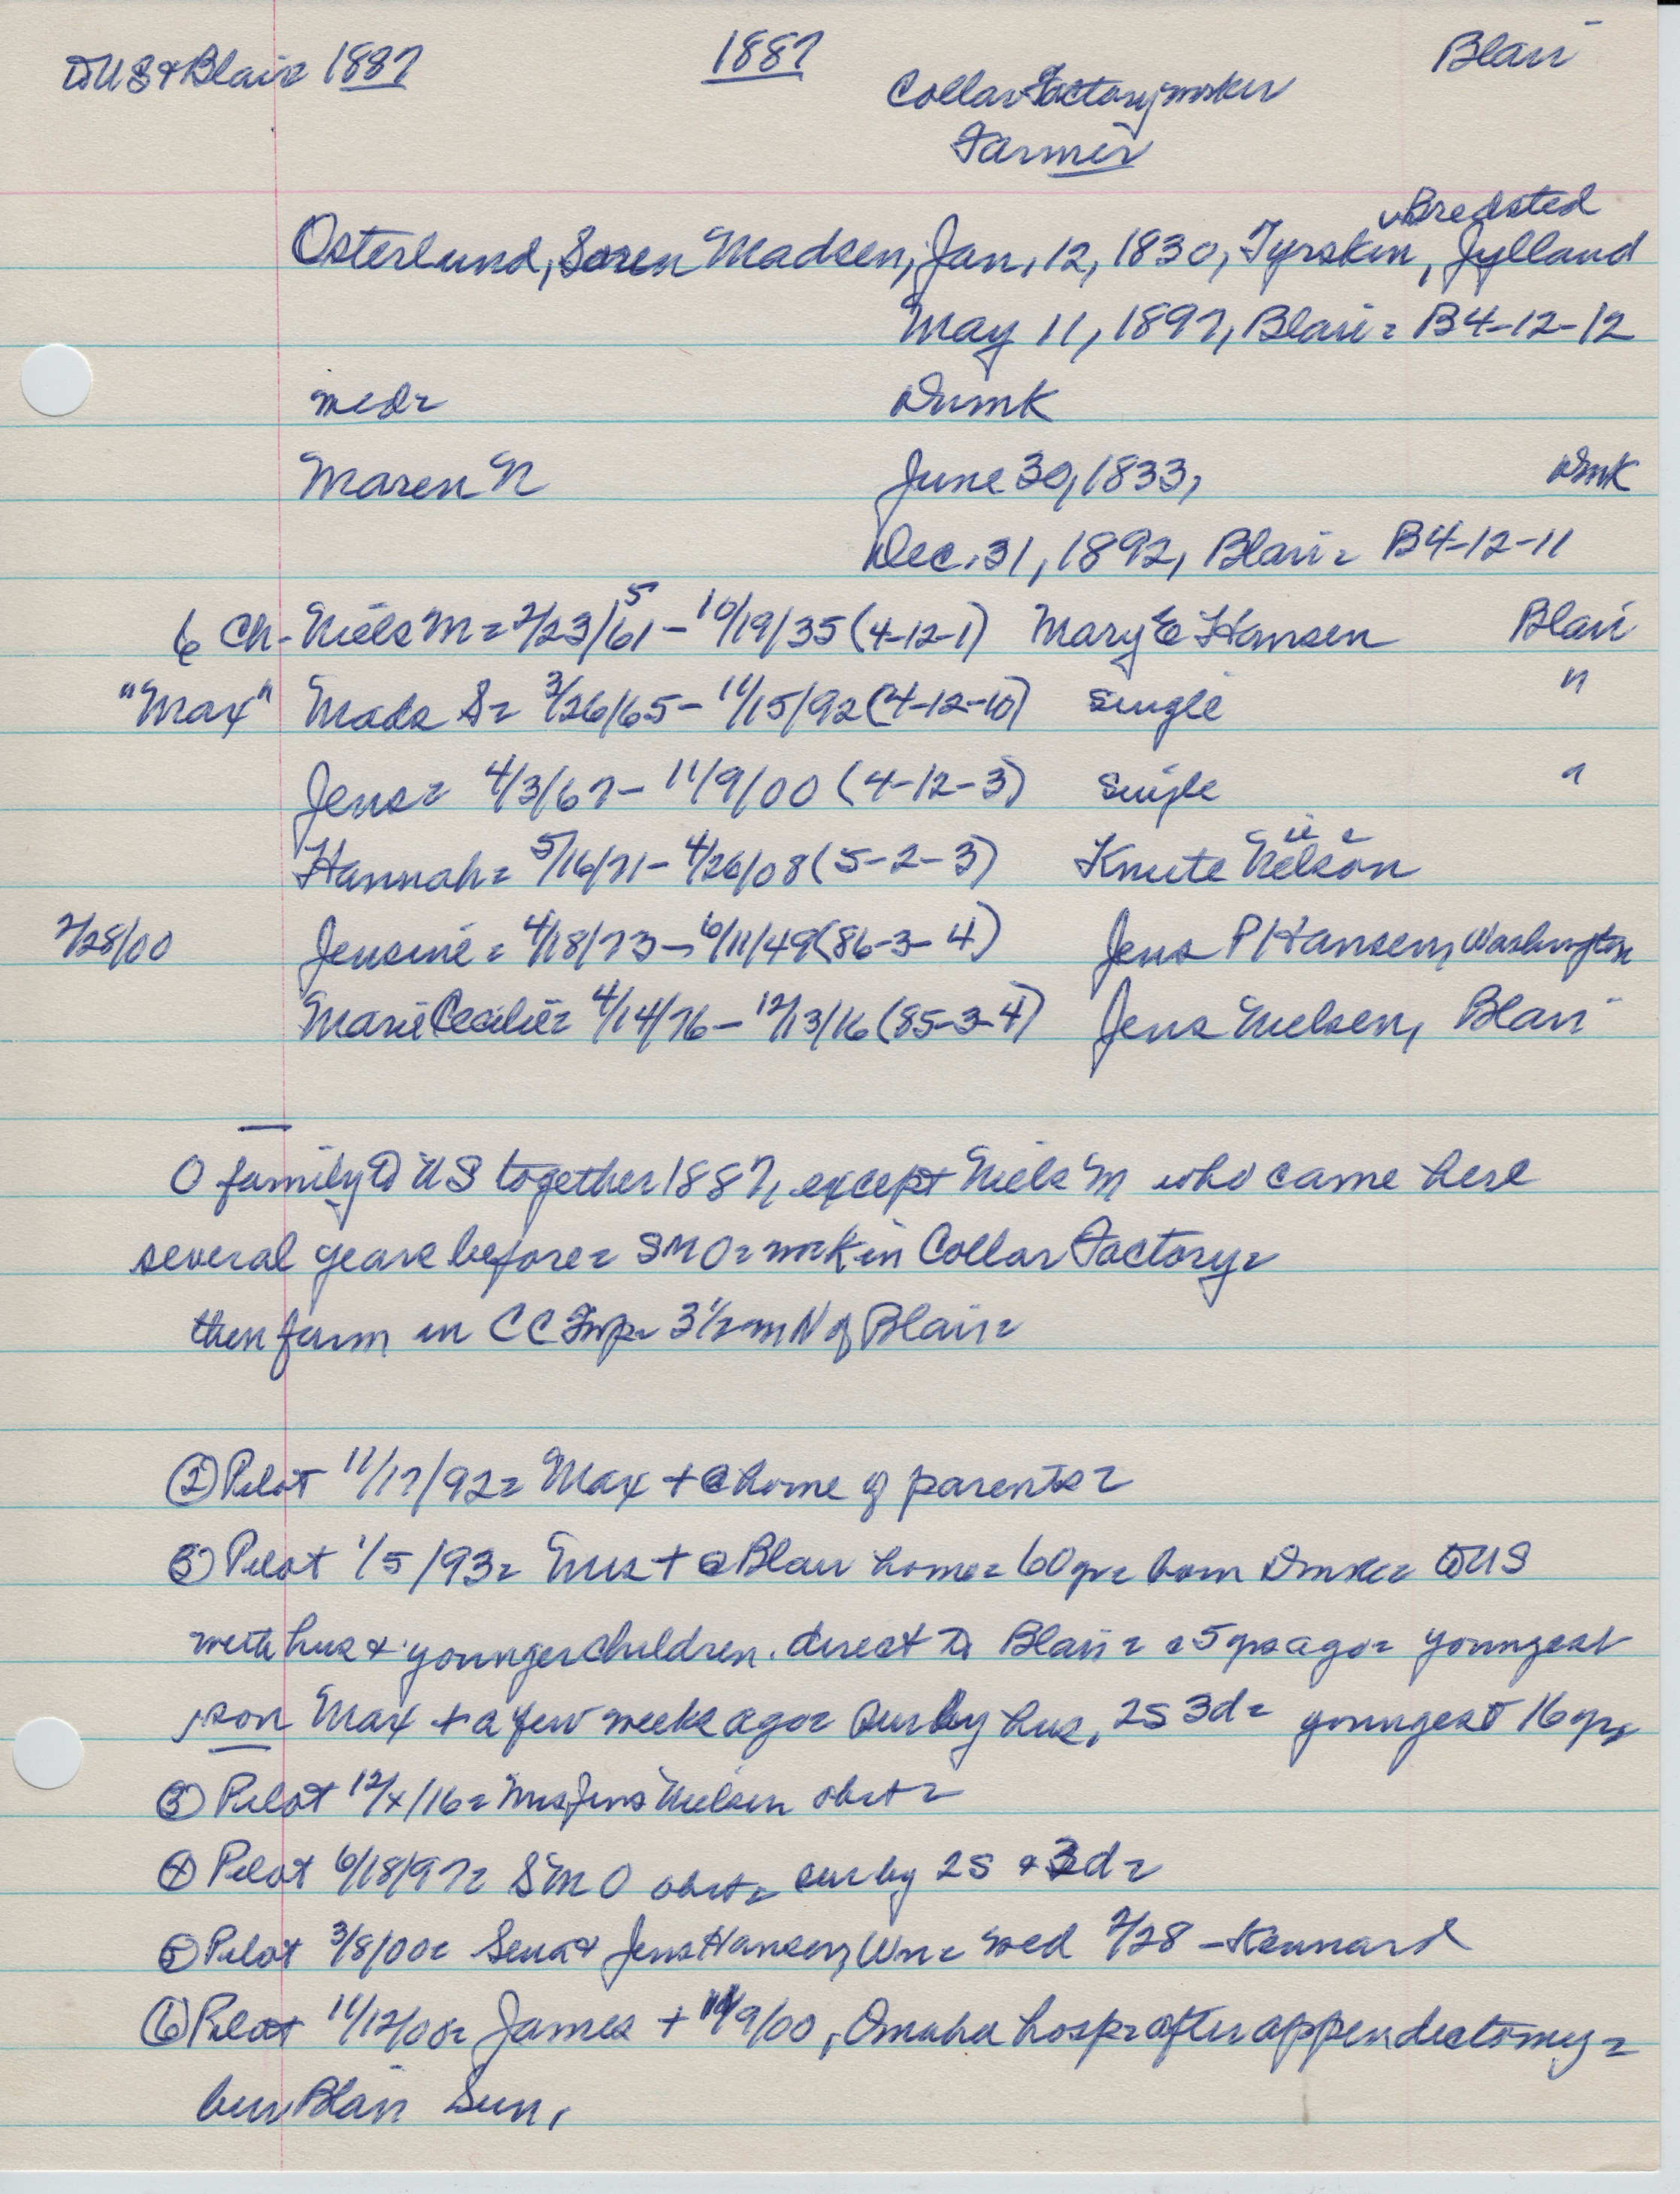 to US & Blair 1887 1887 Blair
Collar Factory worker
Farmer
v Bredsted
Osterlund, Soren Madsen, Jan, 12, 1830, Tyrskin, Jylland
May 11, 1897, Blair = B4-12-12
med = Dnmk
Maren N June 30, 1833, Dmk
Dec. 31, 1892, Blair = B4-12-11
5
6 Ch - Niels M = 2/23/61 - 10/19/35 (4-12-1) Mary E Hansen Blair
"Max" Mads S = 3/26/65 - 11/15/92 (4-12-10) single "
Jens = 4/3/67 - 11/9/00 (4-12-3) single "
Hannah = 5/16/71 - 4/26/08 (5-2-3) Knute Nelson
2/28/00 Jensine = 4/18/73 - 6/11/49 (86-3-4) Jens P Hansen, Washington
Marie Cecilie = 4/14/76 - 12/13/16 (85-3-4) Jens Nielsen, Blair
O family to US together 1887, except Niels M who came here
several years before = SMO = work in Collar Factory =
then farm in CC Twp = 3 1/2 m N of Blair =
② Pilot 11/17/92 = Max + @ home of parents =
③ Pilot 1/5/93 = Mrs + @ Blair home = 60 yr = born Dmk = to US
with hus & younger children. direct to Blair = c 5 yrs ago = youngest
son Max + a few weeks ago = sur by hus, 2s 3d = youngest 16 yrs
③ Pilot 12/x/16 = Mrs Jens Nielsen obit =
④ Pilot 6/18/97 = SMO obit = sur by 2s & 3d =
⑤ Pilot 3/8/00 = Sena & Jens Hansen, Wn = wed 2/28 - Kennard
⑥ Pilot 11/12/00 = James + 11/9/00, Omaha hosp = after appendectomy =
bur Blair Sun,